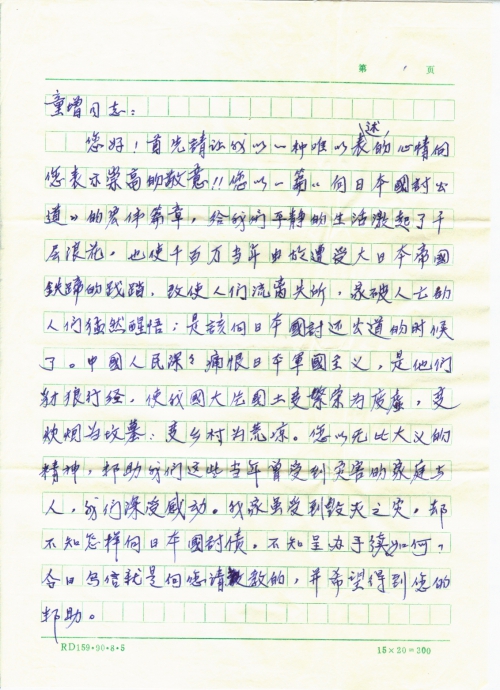 第 1 页
童增同志：
您好！首先请让我以一种难以表述的心情向
您表示崇高的敬意!!您以一篇《向日本國討公
道》的宏伟篇章，给我们平静的生活激起了千
层浪花，也使千百万当年无故遭受大日本帝國
铁蹄的践踏，致使人们流离失所，家破人亡的
人们猛然醒悟：是該向日本國討还公道的时候
了。中國人民深々痛恨日本軍國主义，是他们
豺狼行径，使我國大片國土变繁荣为废虚，变
炊烟为坟墓；变乡村为荒凉。您以无比大义的
精神，帮助我们这些当年曾受到灾害的家庭与
人，我们深受感动。我家虽受到毁灭之灾，却
不知怎样向日本國討债。不知呈办手續如何，
今日写信就是向您请教的，并希望得到您的
帮助。
RD159·90·8·5 15×20=300